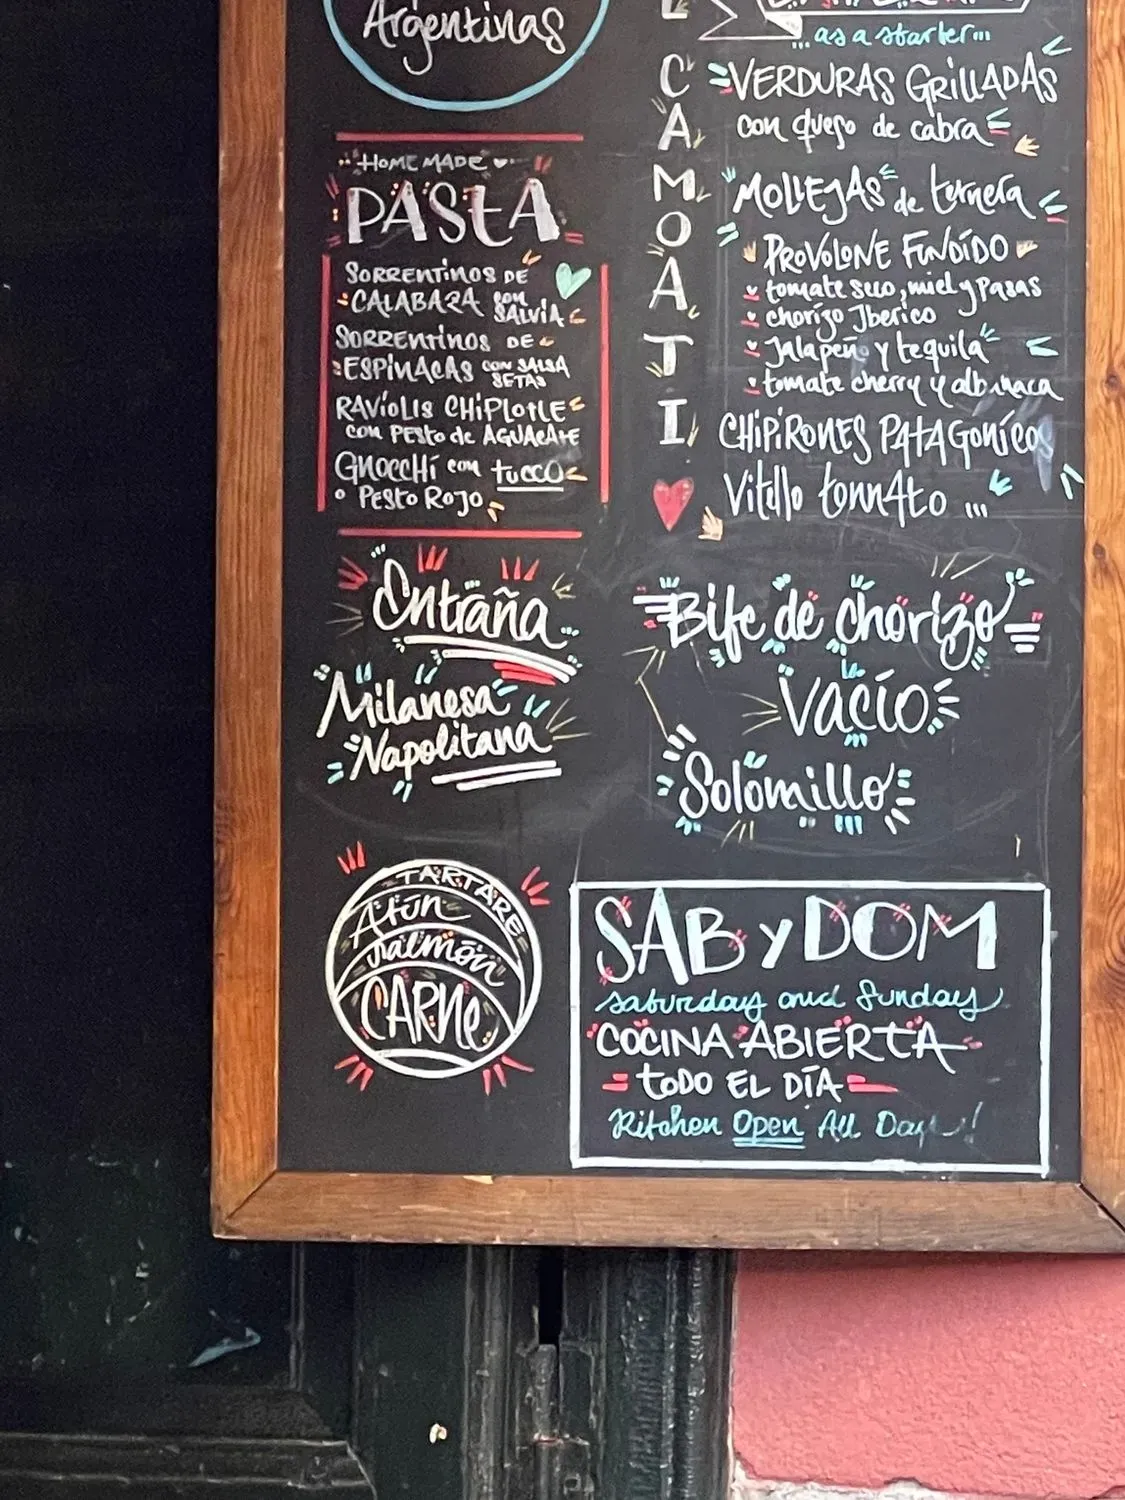 Argentinas
HOME MADE
PASTA
SORRENTINOS DE
CALABAZA con SALVIA
SORRENTINOS DE
ESPINACAS CON SALSA SETAS
RAVIOLIS CHIPLOTLE
con PESTO de AGUACATE
GNOCCHI con tucco
o PESTO ROJO
Entraña
Milanesa
Napolitana
TARTARE
Atún
Salmón
CARNE
CAMOATI
...as a starter...
VERDURAS GRILLADAS
con queso de cabra
MOLLEJAS de ternera
PROVOLONE FUNDÍDO
tomate seco, miel y pasas
chorizo Iberico
Jalapeño y tequila
tomate cherry y albahaca
CHIPIRONES PATAGONÍCOS
Vitello tonnato ...
Bife de chorizo
Vacío
Solomillo
SAB y DOM
saturday and Sunday
COCINA ABIERTA
todo EL DÍA
Kitchen Open All Day !